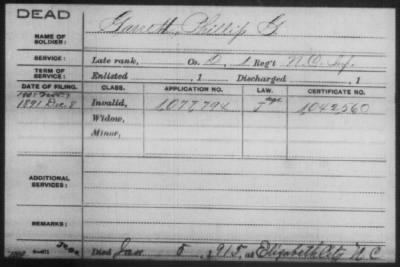 DEAD
NAME OF SOLDIER: Garrett, Phillip G.
SERVICE: Late rank, Co. D, 1 Reg't N.C. Inf.
TERM OF SERVICE: Enlisted , 1 Discharged , 1
DATE OF FILING. CLASS. APPLICATION NO. LAW. CERTIFICATE NO.
1891 Dec. 8 Invalid, 1077794 1042560
Widow,
Minor,
ADDITIONAL SERVICES:
REMARKS:
Died Jan 5, 1915, at Elizabeth City N C